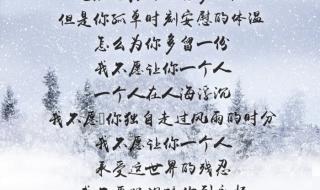 但是你孤单时刻安慰的体温
怎么为你多留一份
我不愿让你一个人
一个人在人海浮沉
我不愿你独自走过风雨的时分
我不愿让你一个人
承受这世界的残忍